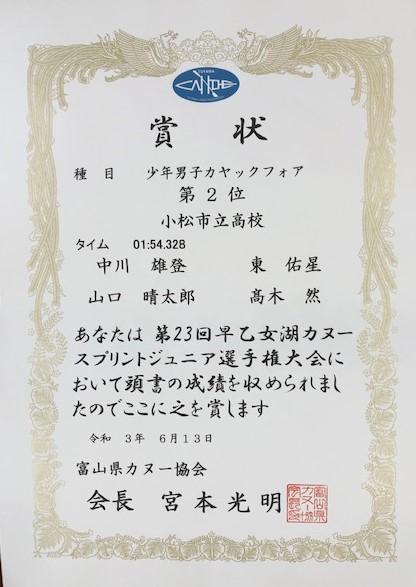 TOYAMA
CANOE
賞 状
種 目 少年男子カヤックフォア
第 2 位
小松市立高校
タイム 01:54.328
中川 雄登 東 佑星
山口 晴太郎 髙木 然
あなたは 第23回早乙女湖カヌー
スプリントジュニア選手権大会に
おいて頭書の成績を収められまし
たのでここに之を賞します
令和 3年 6月13日
富山県カヌー協会
会長 宮本光明